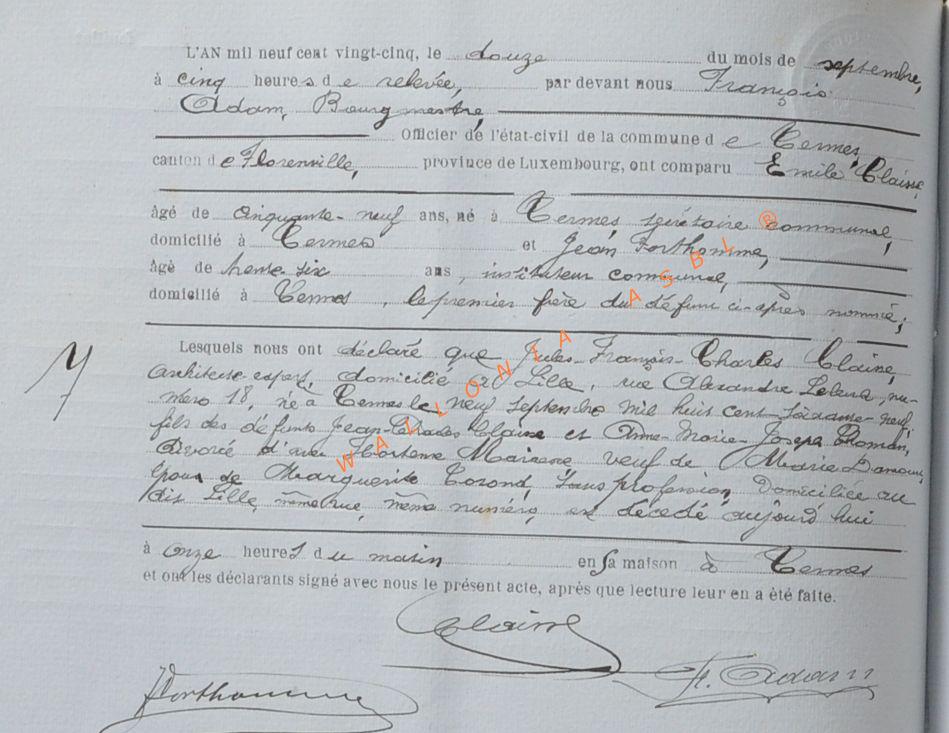 L'AN mil neuf cent vingt-cinq, le douze du mois de septembre,
à cinq heures de relevée, par devant nous François
Adam, Bourgmestre,
Officier de l'état-civil de la commune de Termes,
canton de Florenville, province de Luxembourg, ont comparu Emile Claisse
âgé de cinquante-neuf ans, né à Termes, secrétaire communal,
domicilié à Termes et Jean Forthomme,
âgé de trente six ans, instituteur communal,
domicilié à Termes, le premier frère du défunt ci-après nommé;
7
Lesquels nous ont déclaré que Jules-François-Charles Claisse,
architecte expert, domicilié à Lille, rue Alexandre Leleux, nu-
méro 18, né à Termes le neuf septembre mil huit cent soixante-neuf,
fils des défunts Jean- Claisse et Anne-Marie-Josepha Thomas,
Divorcé d'avec Hortense veuf de Marie
époux de Marguerite sans profession, domiciliée au
dit Lille, même rue, même numéro, est décédé aujourd'hui
à onze heures du matin en sa maison à Termes
et ont les déclarants signé avec nous le présent acte, après que lecture leur en a été faite.
Claisse
F. Adam
Forthomme
WALLONIA ASBL ®